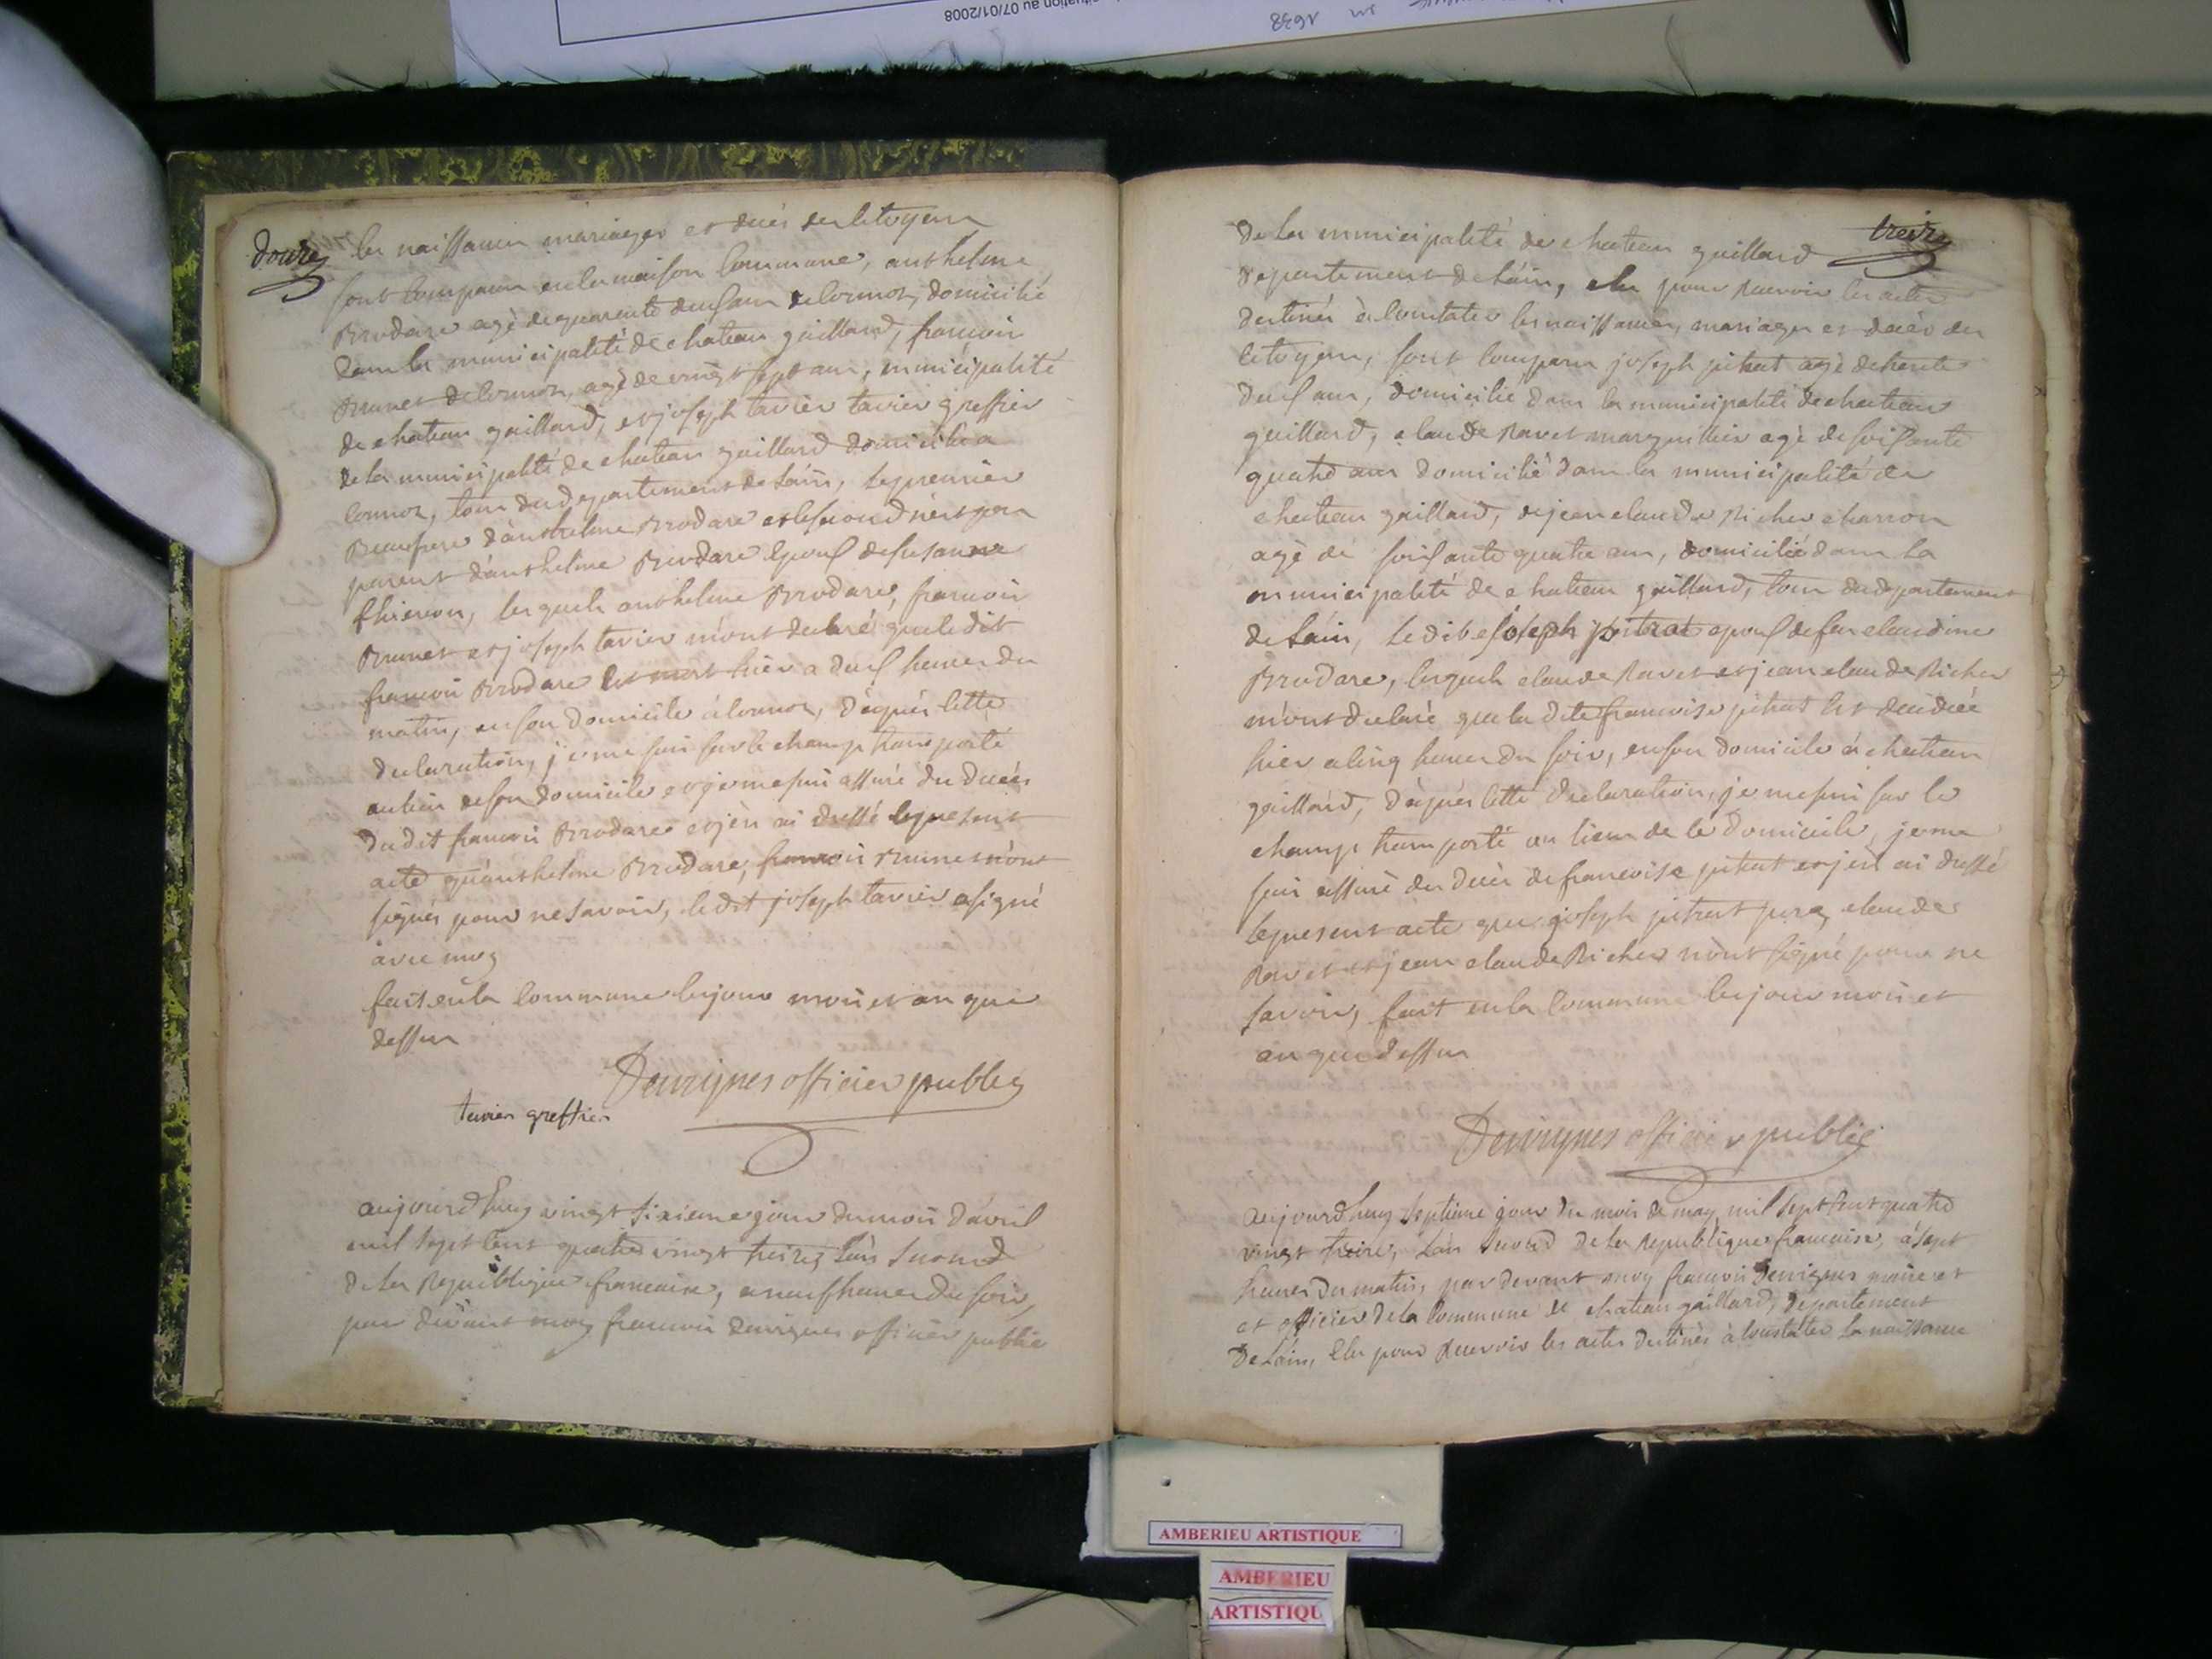 situation au 07/01/2008
1638
douze
les naissances mariages et decès des citoyens
sont comparus en la maison commune, anthelme
Brodare agé de quarente deux ans de cormoz, domicilié
dans la municipalité de chateau gaillard, francois
Brunet de cormoz, agé de vingt sept ans, municipalité
de chateau gaillard, et joseph tavier tavier greffier
de la municipalité de chateau gaillard domicilié a
cormoz, tous du departement de láin, le premier
Beaufrere dánthelme Brodare et le second nést pas
parent dánthelme Brodare epoux de susanne
thienon, lesquels anthelme Brodare, francois
Brunet et joseph tavier mónt declaré que le dit
francois Brodare est mort hièr a deux heures du
matin, en son domicile á cormoz, dápprés cette
declaration, je me suis sur le champ transporté
au lieu de son domicile et je me suis assuré du decès
du dit francois Brodare et jén ai dressé le present
acte quánthelme Brodare, francois Brunet nónt
signés pour ne savoir, le dit joseph tavier a signé
avec moy
fait en la commune les jour mois et an que
dessus
Deuvignes officier public
tavier greffier
aujourdhuy vingt sixieme jour du mois dávril
mil sept cent quatre vingt treize lán second
de la Republique francaise, a neuf heures du soir,
par devant moy francois Deuvignes officier public
treize
de la municipalité de chateau gaillard
departement de láin, elu pour recevoir les actes
destinés à constater les naissances, mariages et decès des
citoyens, sont comparus joseph pitrat agé de trente
deux ans, domicilié dans la municipalité de chateau
gaillard, claude Ravet marguillier agé de soisante
quatre ans domicilié dans la municipalité de
chateau gaillard, et jean claude Richer charron
agé de soisante quatre ans, domicilié dans la
municipalité de chateau gaillard, tous du departement
de láin, le dit joseph pitrat epoux de feu claudine
Brodare, lesquels claude Ravet et jean claude Richer
mónt declaré que la dite francoise pitrat est decedée
hier a cinq heures du soir, en son domicile á chateau
gaillard, dápprés cette declaration, je me suis sur le
champ transporté au lieu de ce domicile, je me
suis assuré du decès de francoise pitrat et jén ai dressé
le present acte que joseph pitrat pere, claude
Ravet et jean claude Richer nónt signé pour ne
savoir, fait en la commune les jour mois et
an que dessus
Deuvignes officier public
aujourdhuy septieme jour du mois de may mil sept cent quatre
vingt treize, lán second de la Republique francaise, á sept
heures du matin, par devant moy francois Deuvignes maire et
et officier de la commune de chateau gaillard, departement
de láin, elu pour recevoir les actes destinés à constater la naissance
AMBERIEU ARTISTIQUE
AMBERIEU
ARTISTIQU